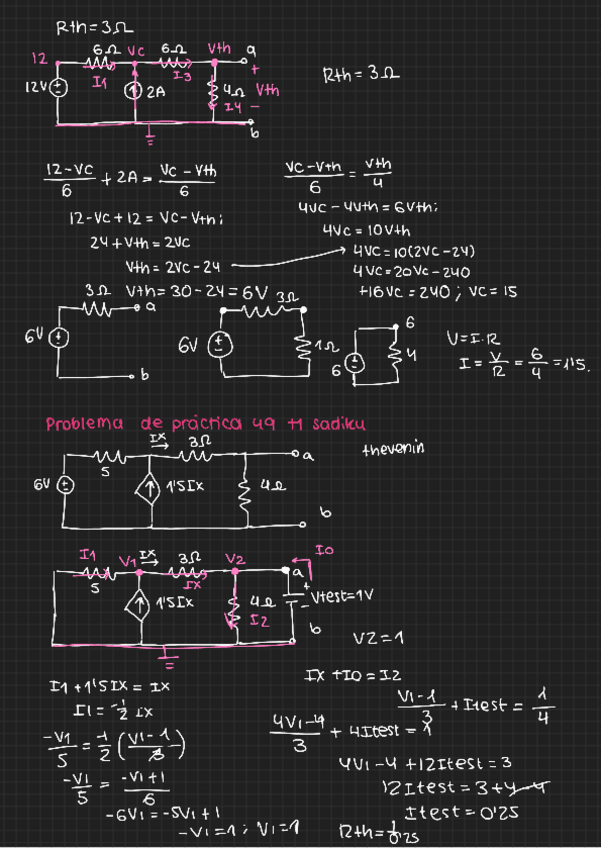 Rth = 3Ω
12 6Ω Vc 6Ω Vth a
I1 I3 +
12V 2A 4Ω Vth
I4 -
b
Rth = 3Ω
12-Vc/6 + 2A = Vc - Vth/6
12-Vc+12 = Vc-Vth;
24+Vth = 2Vc
Vth = 2Vc-24
Vth = 30-24 = 6V
Vc-Vth/6 = Vth/4
4Vc - 4Vth = 6Vth;
4Vc = 10Vth
4Vc = 10(2Vc-24)
4Vc = 20Vc - 240
+16Vc = 240 ; Vc = 15
3Ω a
6V
b
3Ω
6V 1Ω
6
6 4
V = I·R
I = V/R = 6/4 = 1'5.
Problema de práctica 49 11 sadiku
Ix
5 3Ω a
6V 1'5Ix 4Ω
b
thevenin
I1 V1 Ix 3Ω V2 Io
5 Ix a
1'5Ix 4Ω + Vtest=1V
I2 -
b
V2 = 1
I1 + 1'5Ix = Ix
I1 = -1/2 Ix
-V1/5 = -1/2 (V1-1/3)
-V1/5 = -V1+1/6
-6V1 = -5V1+1
-V1 = 1 ; V1 = 1
Ix + Io = I2
V1-1/3 + Itest = 1/4
4V1-4/3 + 4Itest = 1
4V1-4+12Itest = 3
12Itest = 3+4-4
Itest = 0'25
Rth = 1/0'25